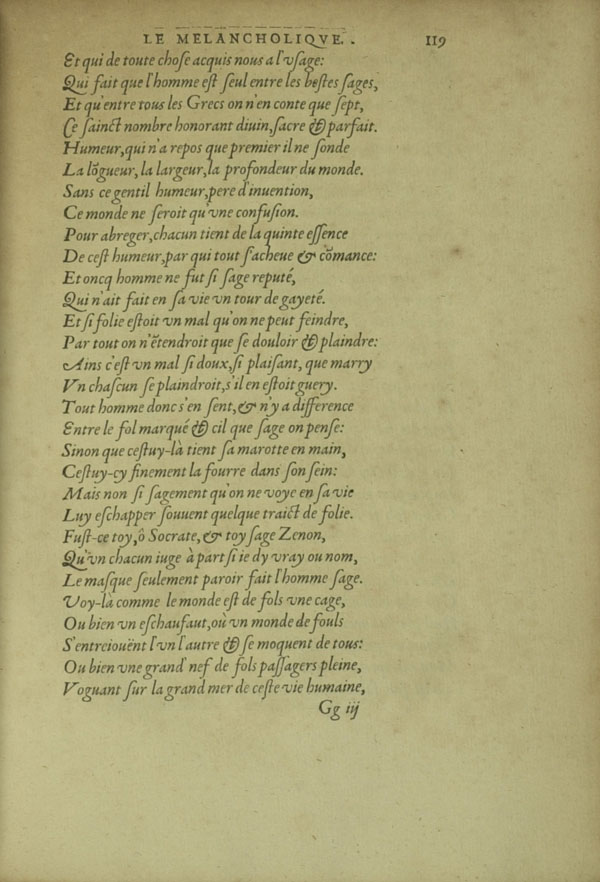 LE MELANCHOLIQVE. . 119
Et qui de toute choſe acquis nous a l'vſage:
Qui fait que l'homme eſt ſeul entre les beſtes ſages,
Et qu'entre tous les Grecs on n'en conte que ſept,
Ce ſainct nombre honorant diuin, ſacre & parfait.
Humeur, qui n'a repos que premier il ne ſonde
La lõgueur, la largeur, la profondeur du monde.
Sans ce gentil humeur, pere d'inuention,
Ce monde ne ſeroit qu'vne confuſion.
Pour abreger, chacun tient de la quinte eſſence
De ceſt humeur, par qui tout s'acheue & cõmance:
Et oncq homme ne fut ſi ſage reputé,
Qui n'ait fait en ſa vie vn tour de gayeté.
Et ſi folie eſtoit vn mal qu'on ne peut feindre,
Par tout on n'ẽtendroit que ſe douloir & plaindre:
Ains c'eſt vn mal ſi doux, ſi plaiſant, que marry
Vn chaſcun ſe plaindroit, s'il en eſtoit guery.
Tout homme donc s'en ſent, & n'y a difference
Entre le fol marqué & cil que ſage on penſe:
Sinon que ceſtuy-là tient ſa marotte en main,
Ceſtuy-cy finement la fourre dans ſon ſein:
Mais non ſi ſagement qu'on ne voye en ſa vie
Luy eſchapper ſouuent quelque traict de folie.
Fuſt-ce toy, ô Socrate, & toy ſage Zenon,
Qu'vn chacun iuge à part ſi ie dy vray ou nom,
Le maſque ſeulement paroir fait l'homme ſage.
Voy-là comme le monde eſt de fols vne cage,
Ou bien vn eſchaufaut, où vn monde de fouls
S'entreiouënt l'vn l'autre & ſe moquent de tous:
Ou bien vne grand' nef de fols paſſagers pleine,
Voguant ſur la grand mer de ceſte vie humaine,
Gg iij